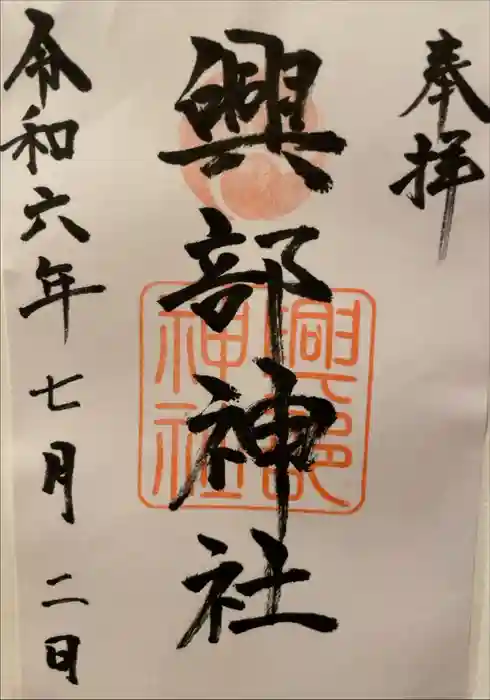 奉拝
興部神社
興部神社
令和六年七月二日